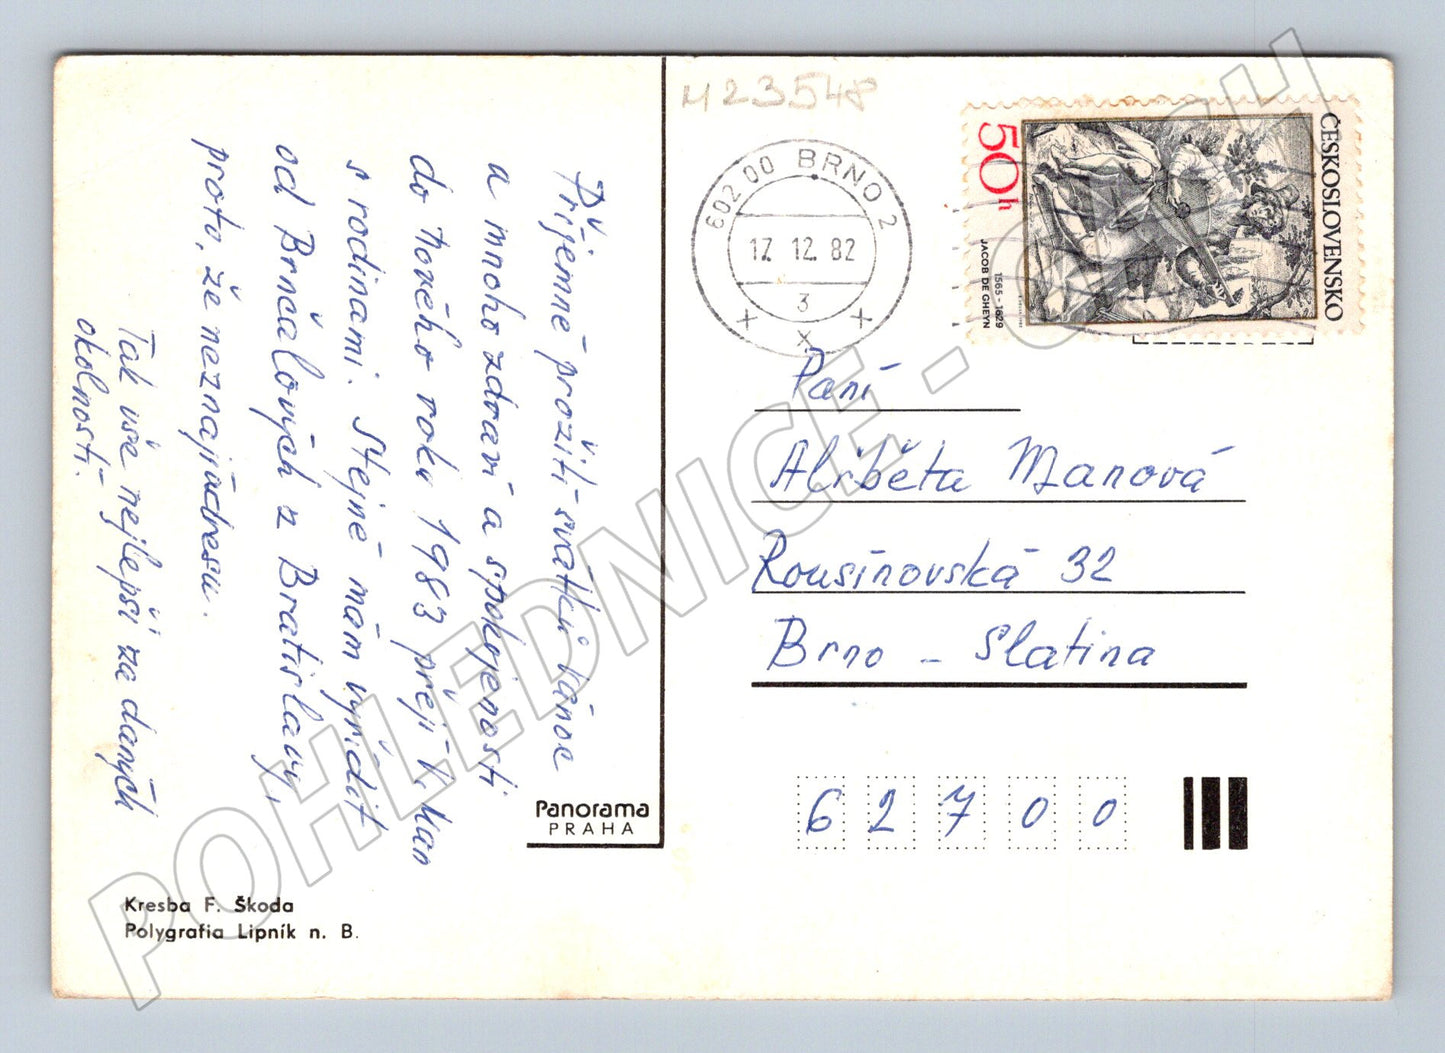 Příjemné prožití svátků vánoc
a mnoho zdraví a spokojenosti
do nového roku 1983 přejí V. Man
s rodinami. Stejně mám vyřídit
od Brnčalových z Bratislavy,
proto, že neznají adresu.
Tak vše nejlepší za daných
okolností.
Panorama
PRAHA
Kresba F. Škoda
Polygrafia Lipník n. B.
M23548
602 00 BRNO 2
17. 12. 82
3
ČESKOSLOVENSKO
50h
1565 - 1629
JACOB DE GHEYN
Paní
Alžběta Manová
Rousínovská 32
Brno - Slatina
6 2 7 0 0
POHLEDNICE - CZECH